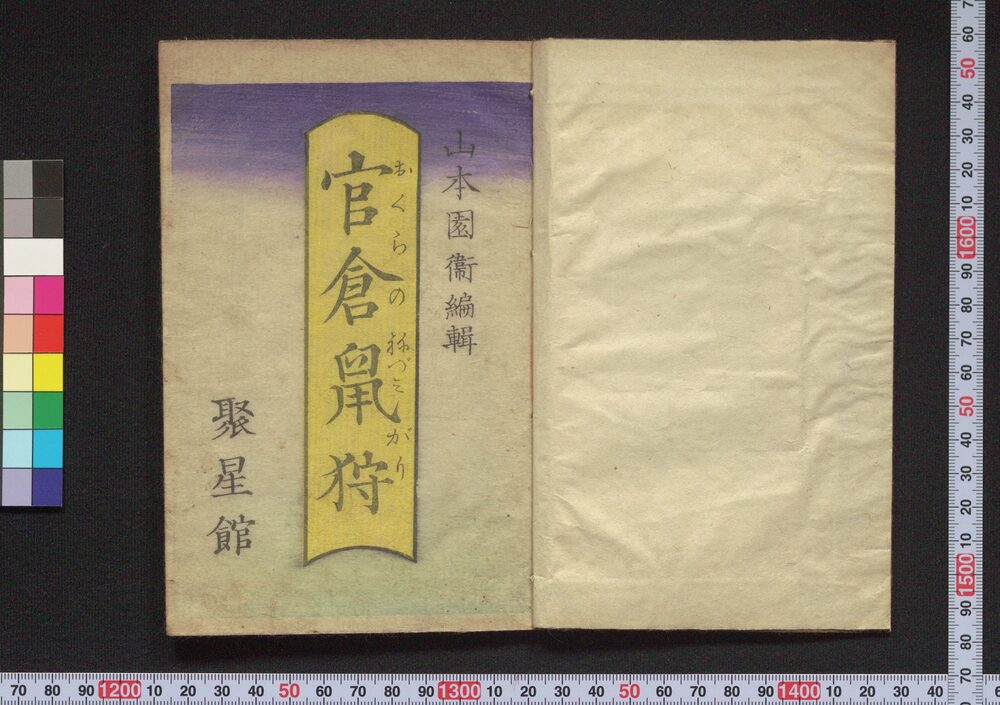 山本園衞編輯
官倉鼠狩
おくらのねづみがり
聚星館
70 80 90 1200 10 20 30 40 50 60 70 80 90 1300 10 20 30 40 50 60 70 80 90 1400 10 20 30 40
60 50 40 30 20 10 1600 90 80 70 60 50 40 30 20 10 1500 90 80 70